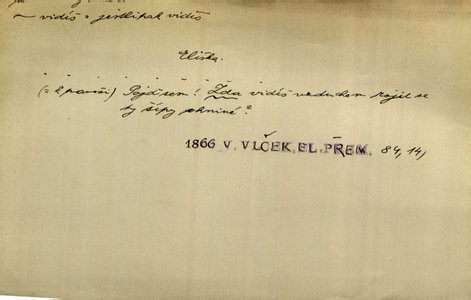 ~ vidíš = jestlipak vidíš
Eliška.
Pojď sem! Zda vidíš vzduchem rojit se
ty šípy ohnivé?
1866 V. VLČEK, EL. PŘEM. 84, 14)